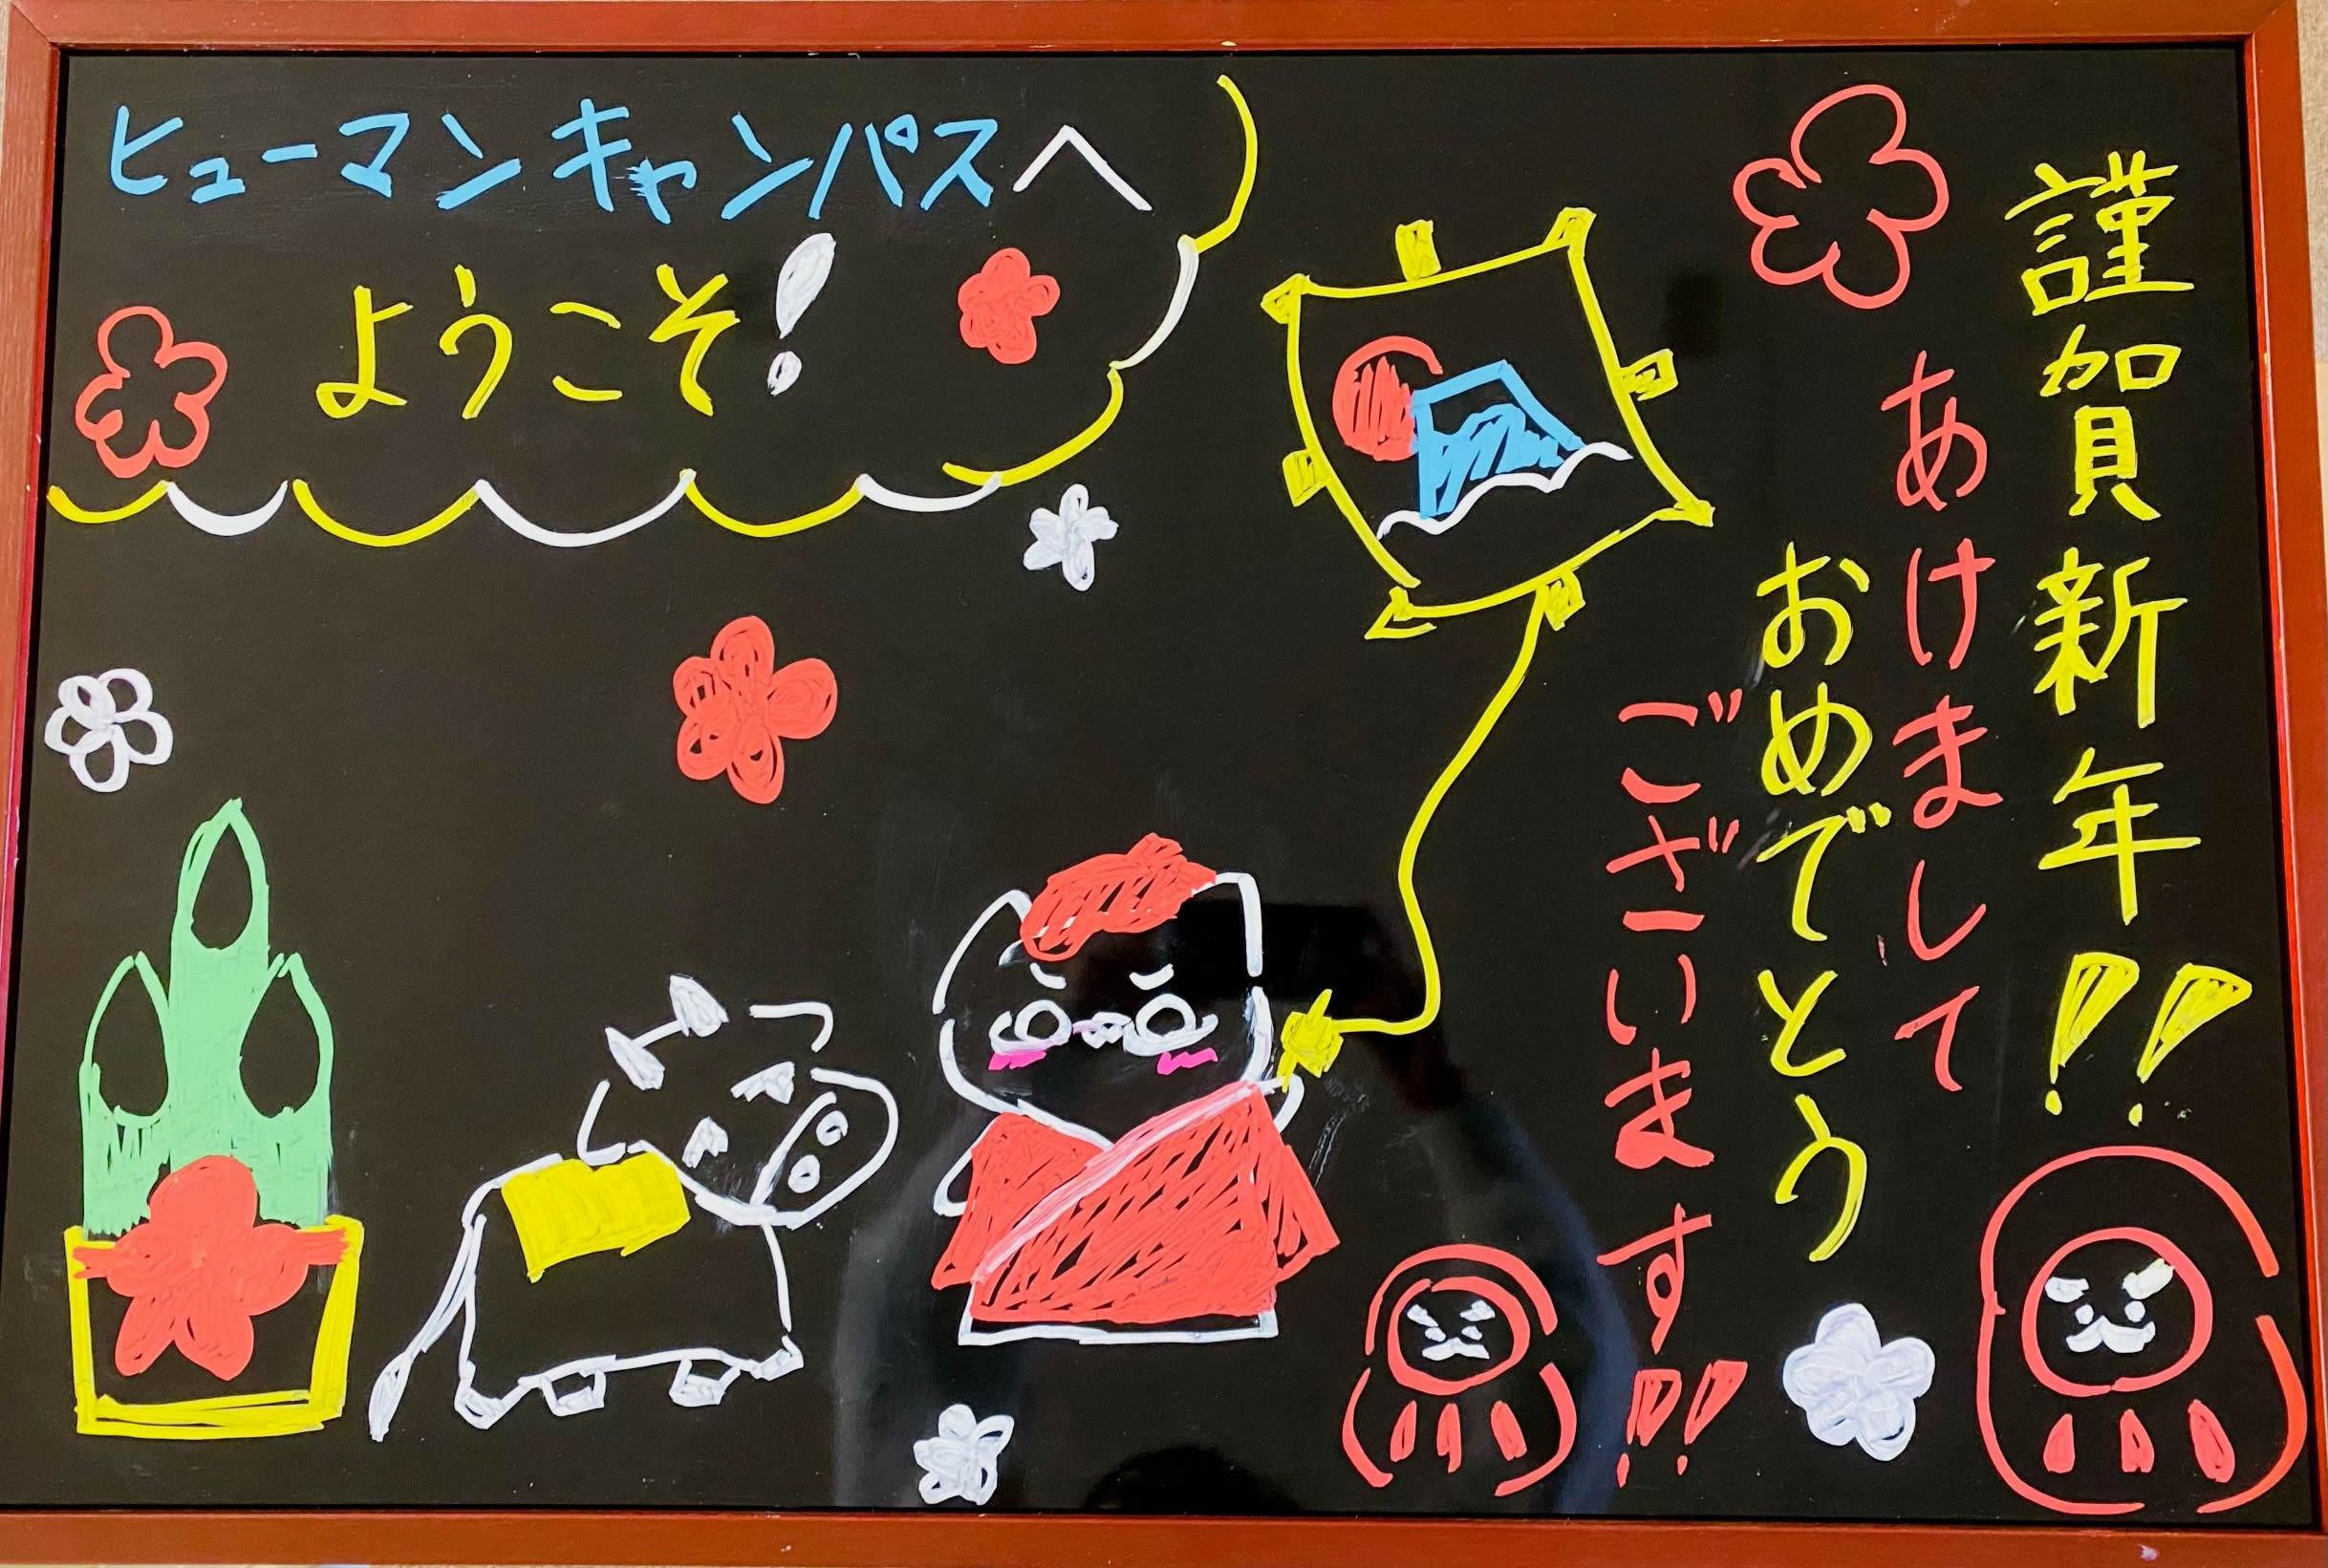 ヒューマンキャンパスへ
ようこそ!
謹賀新年!!
あけまして
おめでとう
ございます!!